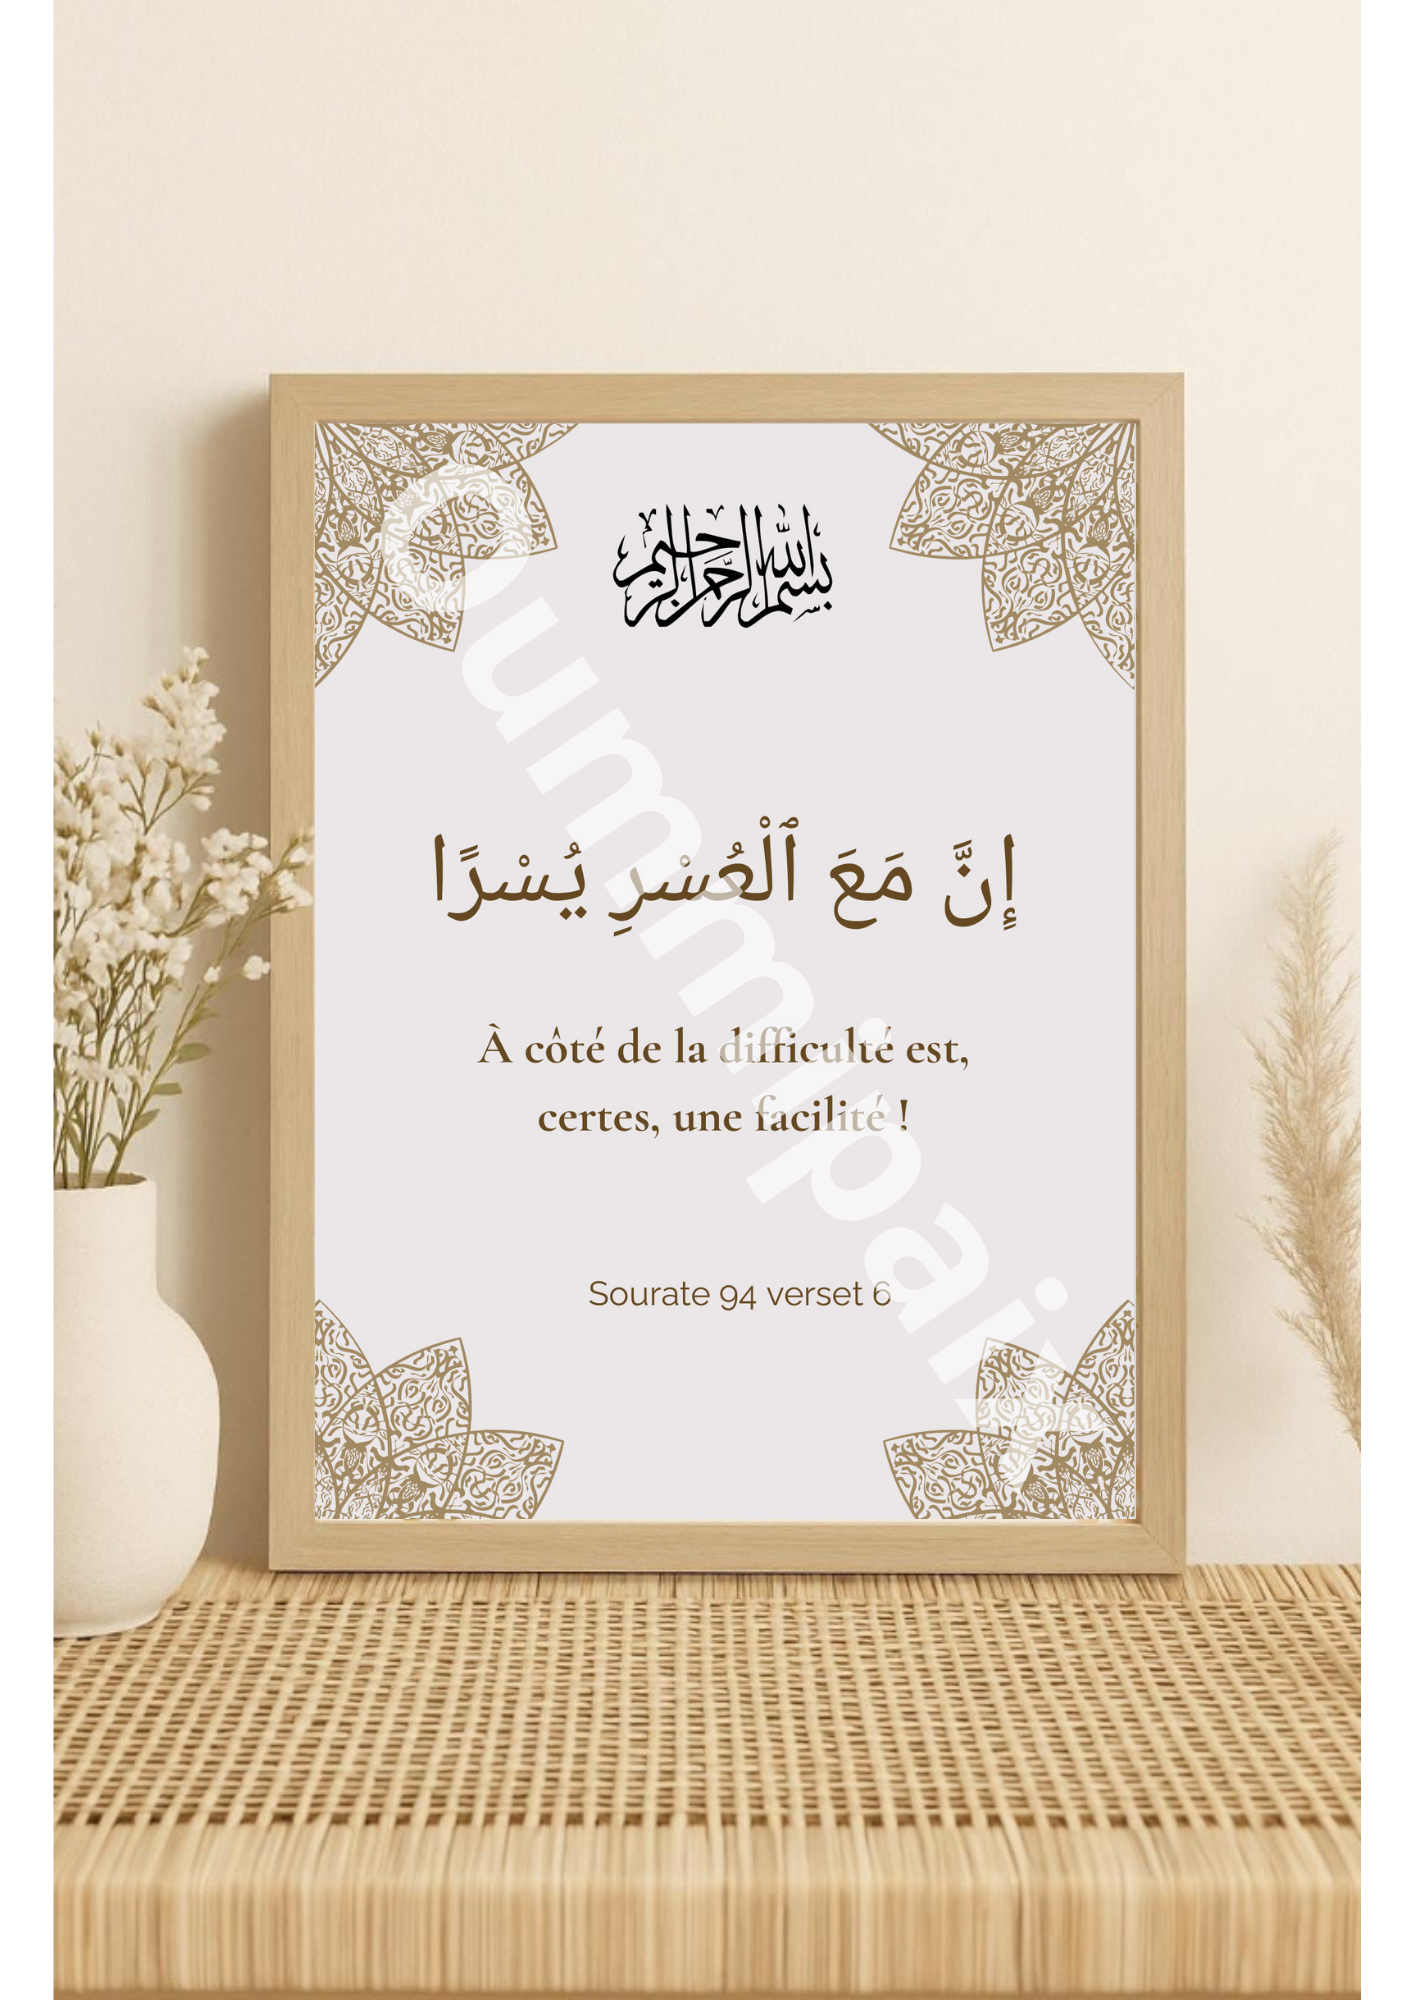 بسم الله الرحمن الرحيم
إِنَّ مَعَ ٱلْعُسْرِ يُسْرًا
À côté de la difficulté est,
certes, une facilité !
Sourate 94 verset 6
Oummipaix